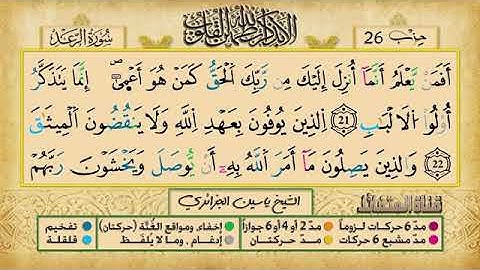 حزب 26
سورة الرعد
أَفَمَنْ يَّعْلَمُ أَنَّمَآ أُنزِلَ إِلَيْكَ مِن رَّبِّكَ اَلْحَقُّ كَمَنْ هُوَ أَعْمَىٰٓ إِنَّمَا يَتَذَكَّرُ
أُوْلُواْ اُلَالْبَٰبِ 21 اَلذِينَ يُوفُونَ بِعَهْدِ اِللَّهِ وَلَا يَنقُضُونَ اَلْمِيثَٰقَ
22 وَالذِينَ يَصِلُونَ مَآ أَمَرَ اَللَّهُ بِهِۦٓ أَنْ يُّوصَلَ وَيَخْشَوْنَ رَبَّهُمْ
الشيخ ياسين الجزائري
مدّ 6 حركات لزوماً مدّ 2 أو 4 أو 6 جوازاً إخفاء، ومواقع الغُنَّة (حركتان) تفخيم
مدّ مشبع 6 حركات مدّ حركتان إدغام، وما لا يُلفَظ قلقلة